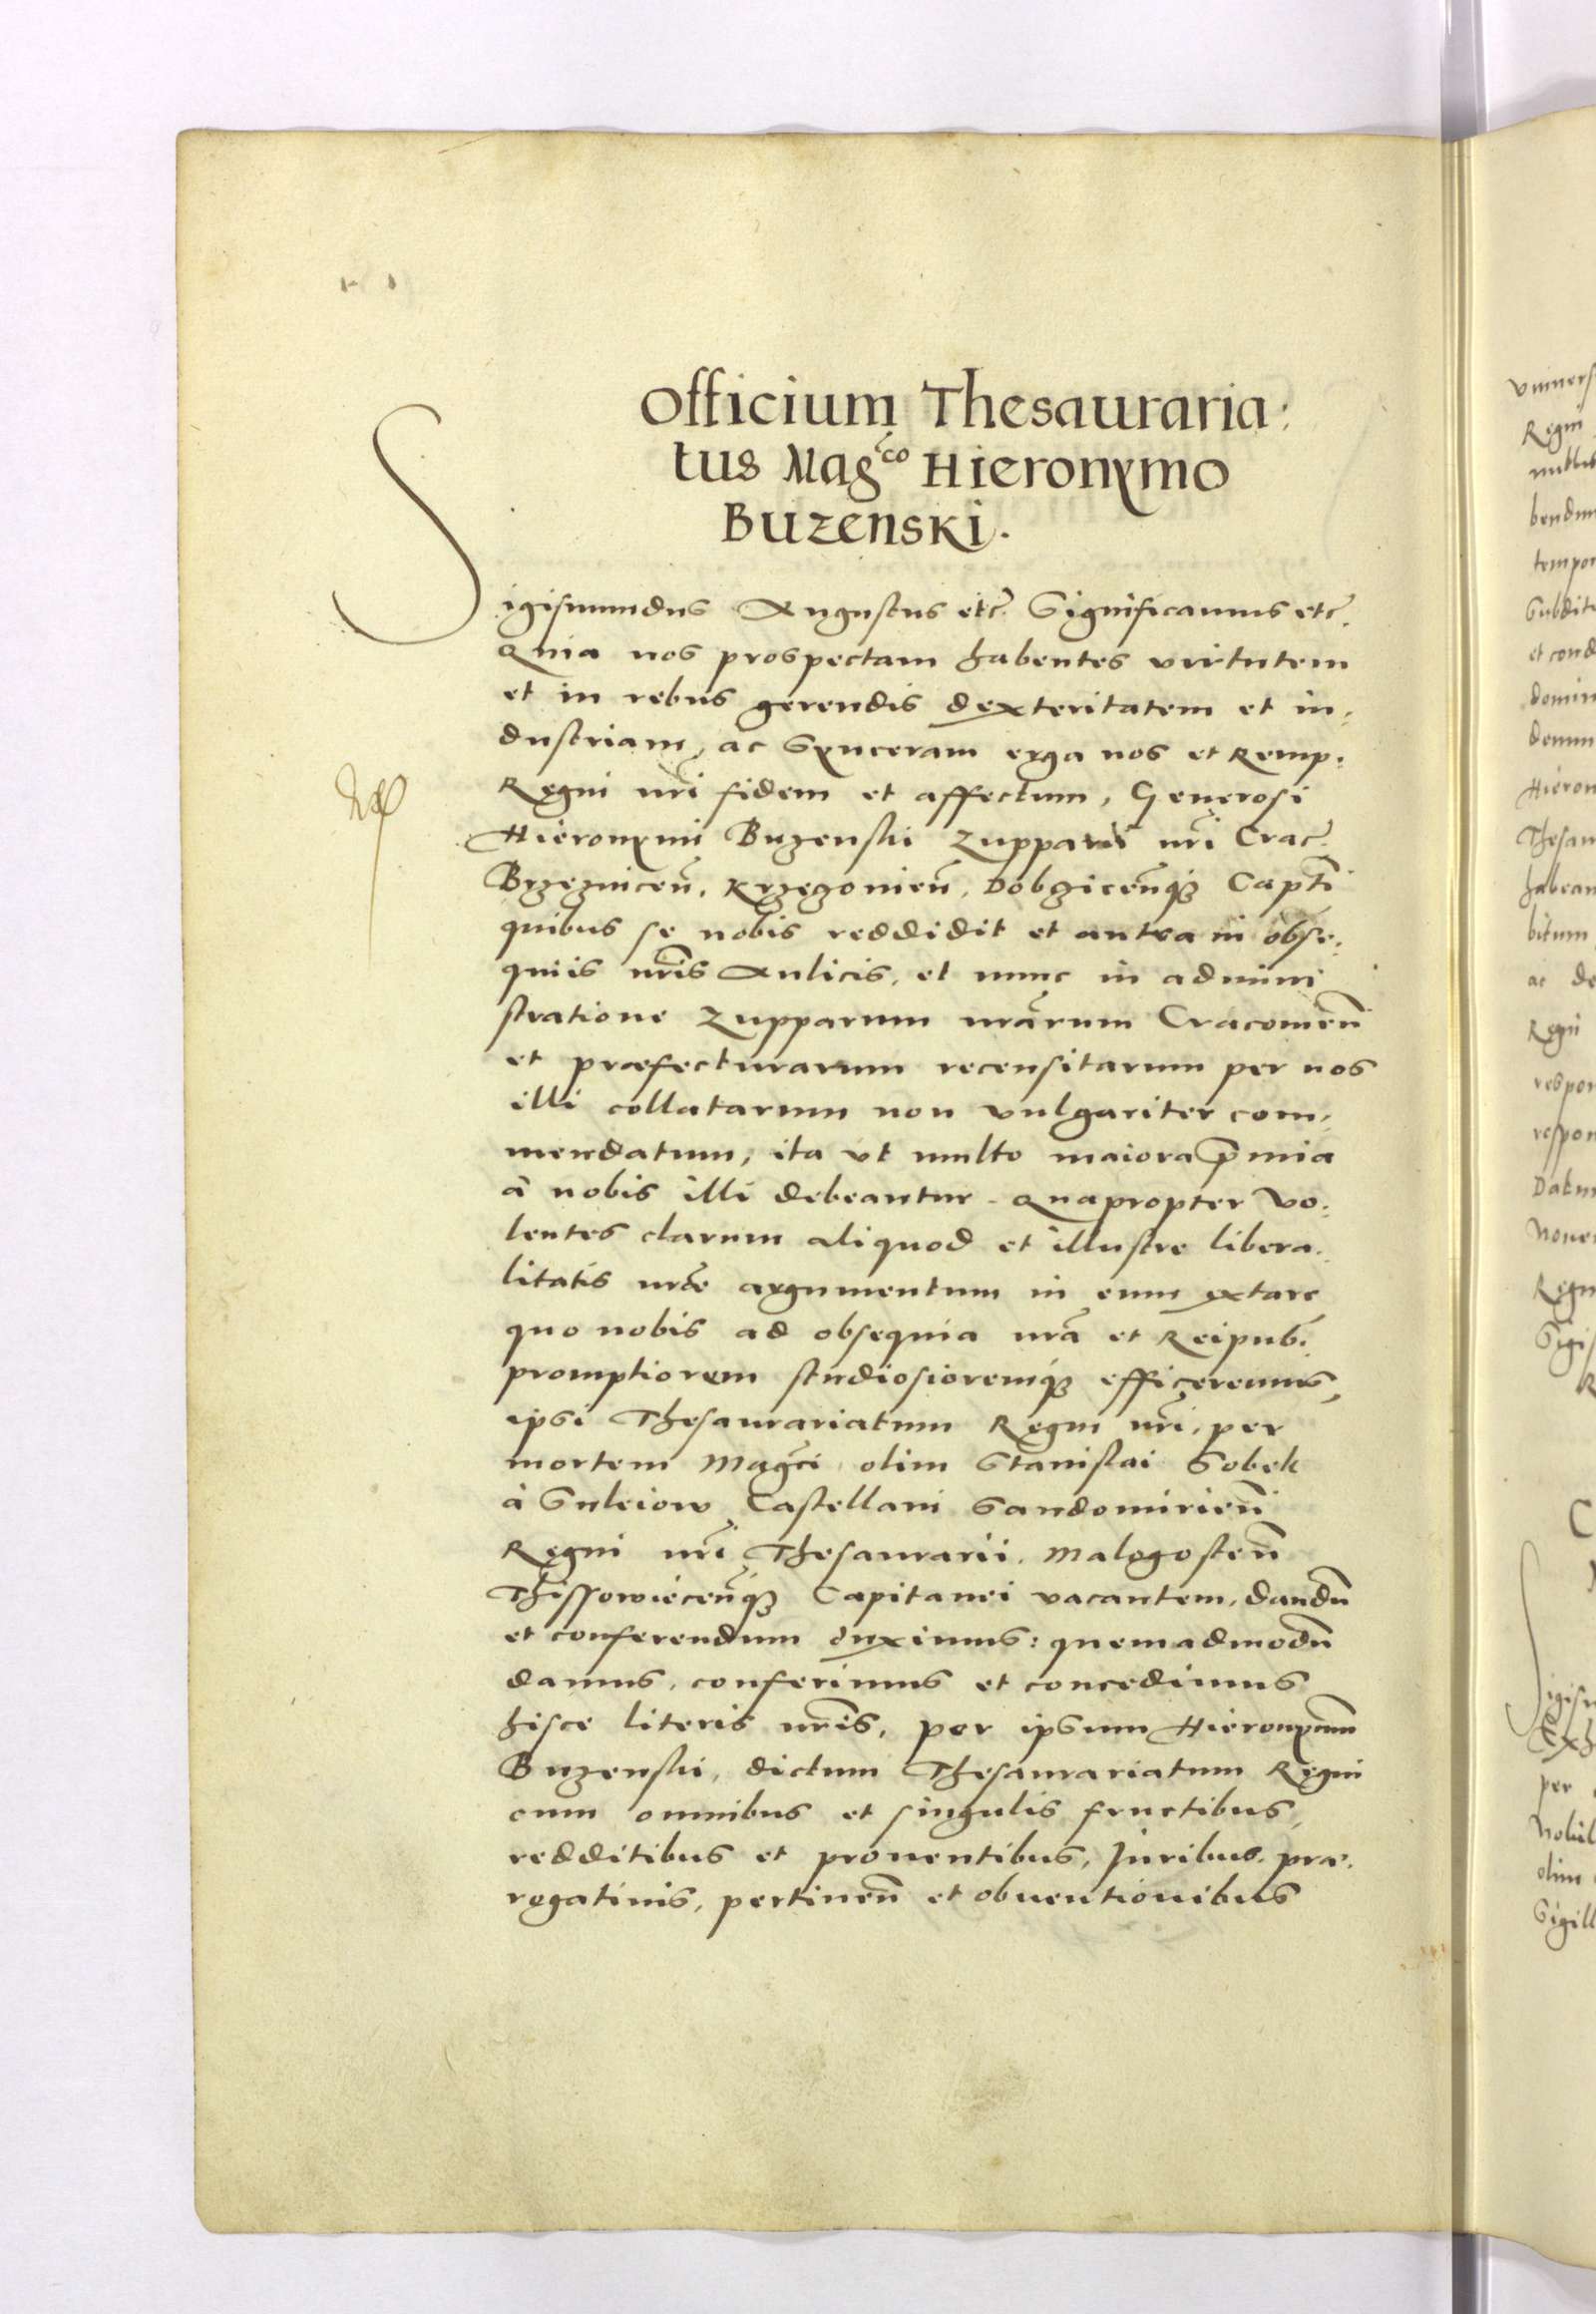 Officium Thesauraria:
tus Mag^co Hieronymo
Buzenski.
Sigismundus Augustus etc̃ Significamus etc̃.
Quia nos prospectam habentes virtutem
et in rebus gerendis dexteritatem et in,
dustriam, ac synceram erga nos et Remp.
Regni nr̃i fidem et affectum, Generosi
Hieronymi Buzenski Zupparii nr̃i Crac̃
Brzezniceñ. Krzeczonieñ, Dobcziceñq₃ Capt̃i
quibus se nobis reddidit et antea in obse,
quiis nr̃is Aulicis, et nunc in admini
stratione Zupparum nr̃arum Cracovieñ
et præfecturarum recensitarum per nos
illi collatarum non vulgariter com,
mendatum, ita ut multo maiora p̃mia
à nobis illi debeantur. Quapropter Vo,
lentes clarum aliquod et illustre libera,
litatis nr̃æ argumentum in eum extare
quo nobis ad obsequia nr̃a et Reipub.
promptiorem studiosioremq₃ efficeremus,
ipsi Thesaurariatum Regni nr̃i, per
mortem Mag̃ci olim Stanislai Sobek
à Suleiow Castellani Sandomirieñ
Regni nr̃i Thesaurarii. Malogosteñ
Thissowieceñq₃ Capitanei vacantem, dandũ
et conferendum duximus: quemadmodũ
damus, conferimus et concedimus
hisce literis nr̃is, per ipsum Hieronymum
Buzenski, dictum Thesaurariatum Regni
cum omnibus et singulis fructibus,
redditibus et proventibus, Juribus, præ,
rogativis, pertineñ et obventionibus